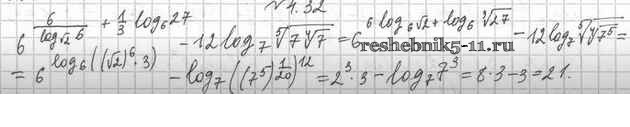 №4.32
6^{6/log_{√2} 6 + 1/3 log_6 27} - 12 log_7 \sqrt[5]{7\sqrt[4]{7}} = 6^{6 log_6 √2 + log_6 \sqrt[3]{27}} - 12 log_7 \sqrt[5]{\sqrt[4]{7^5}} =
reshebnik5-11.ru
= 6^{log_6((√2)^6·3)} - log_7((7^5)^{1/20})^{12} = 2^3·3 - log_7 7^3 = 8·3-3=21.